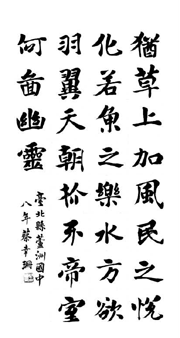 猶草上加風民之悅
化若魚之樂水方欲
羽翼天朝抃不帝室
何啚幽靈
臺北縣蘆洲國中
八年蔡幸珊